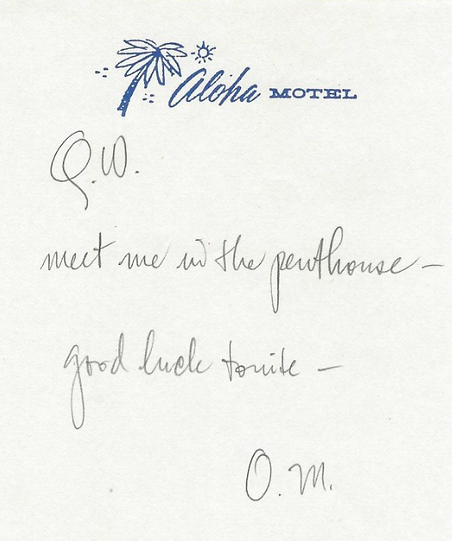 Aloha MOTEL
Q.W.
meet me in the penthouse –
good luck tonite –
O.M.